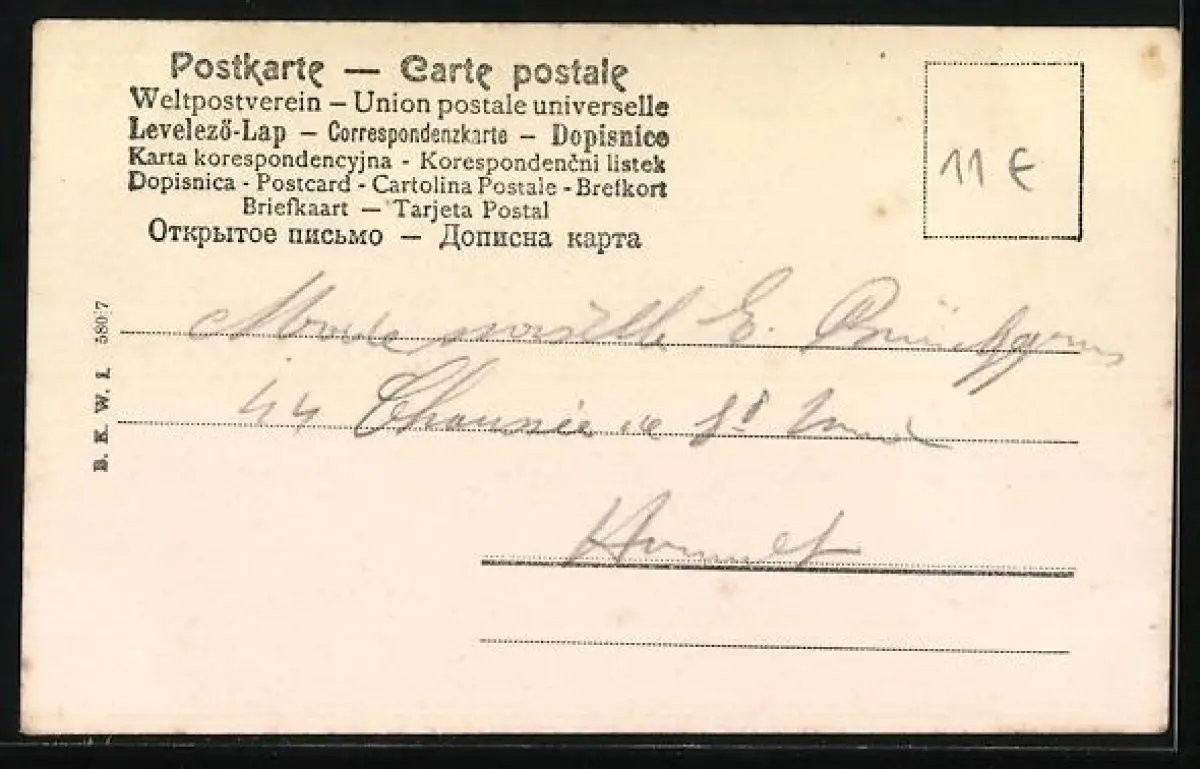 Postkarte — Carte postale
Weltpostverein – Union postale universelle
Levelező-Lap – Correspondenzkarte – Dopisnice
Karta korespondencyjna - Korespondenční listek
Dopisnica - Postcard - Cartolina Postale - Brefkort
Briefkaart — Tarjeta Postal
Открытое письмо — Дописна карта
11 €
E.
44 Chaussée de St
B. K. W. I.